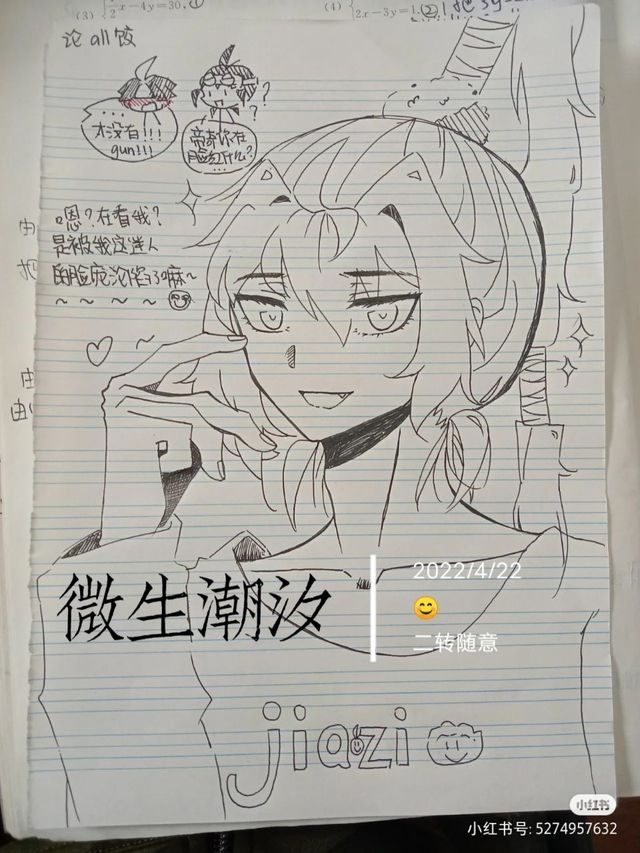 (3)
x-4y=30,①
(4)
2x-3y=1.②
论all饺
...
才没有!!!
gun!!!
帝奇你在
脸红什么?
...
??
?
嗯?在看我?
是被我这迷人
的脸庞沦陷了嘛~
~ ~ ~ ~ ~
~
由
把
由
由
微生潮汐
2022/4/22
😊
二转随意
jiazi
小红书
小红书号: 5274957632